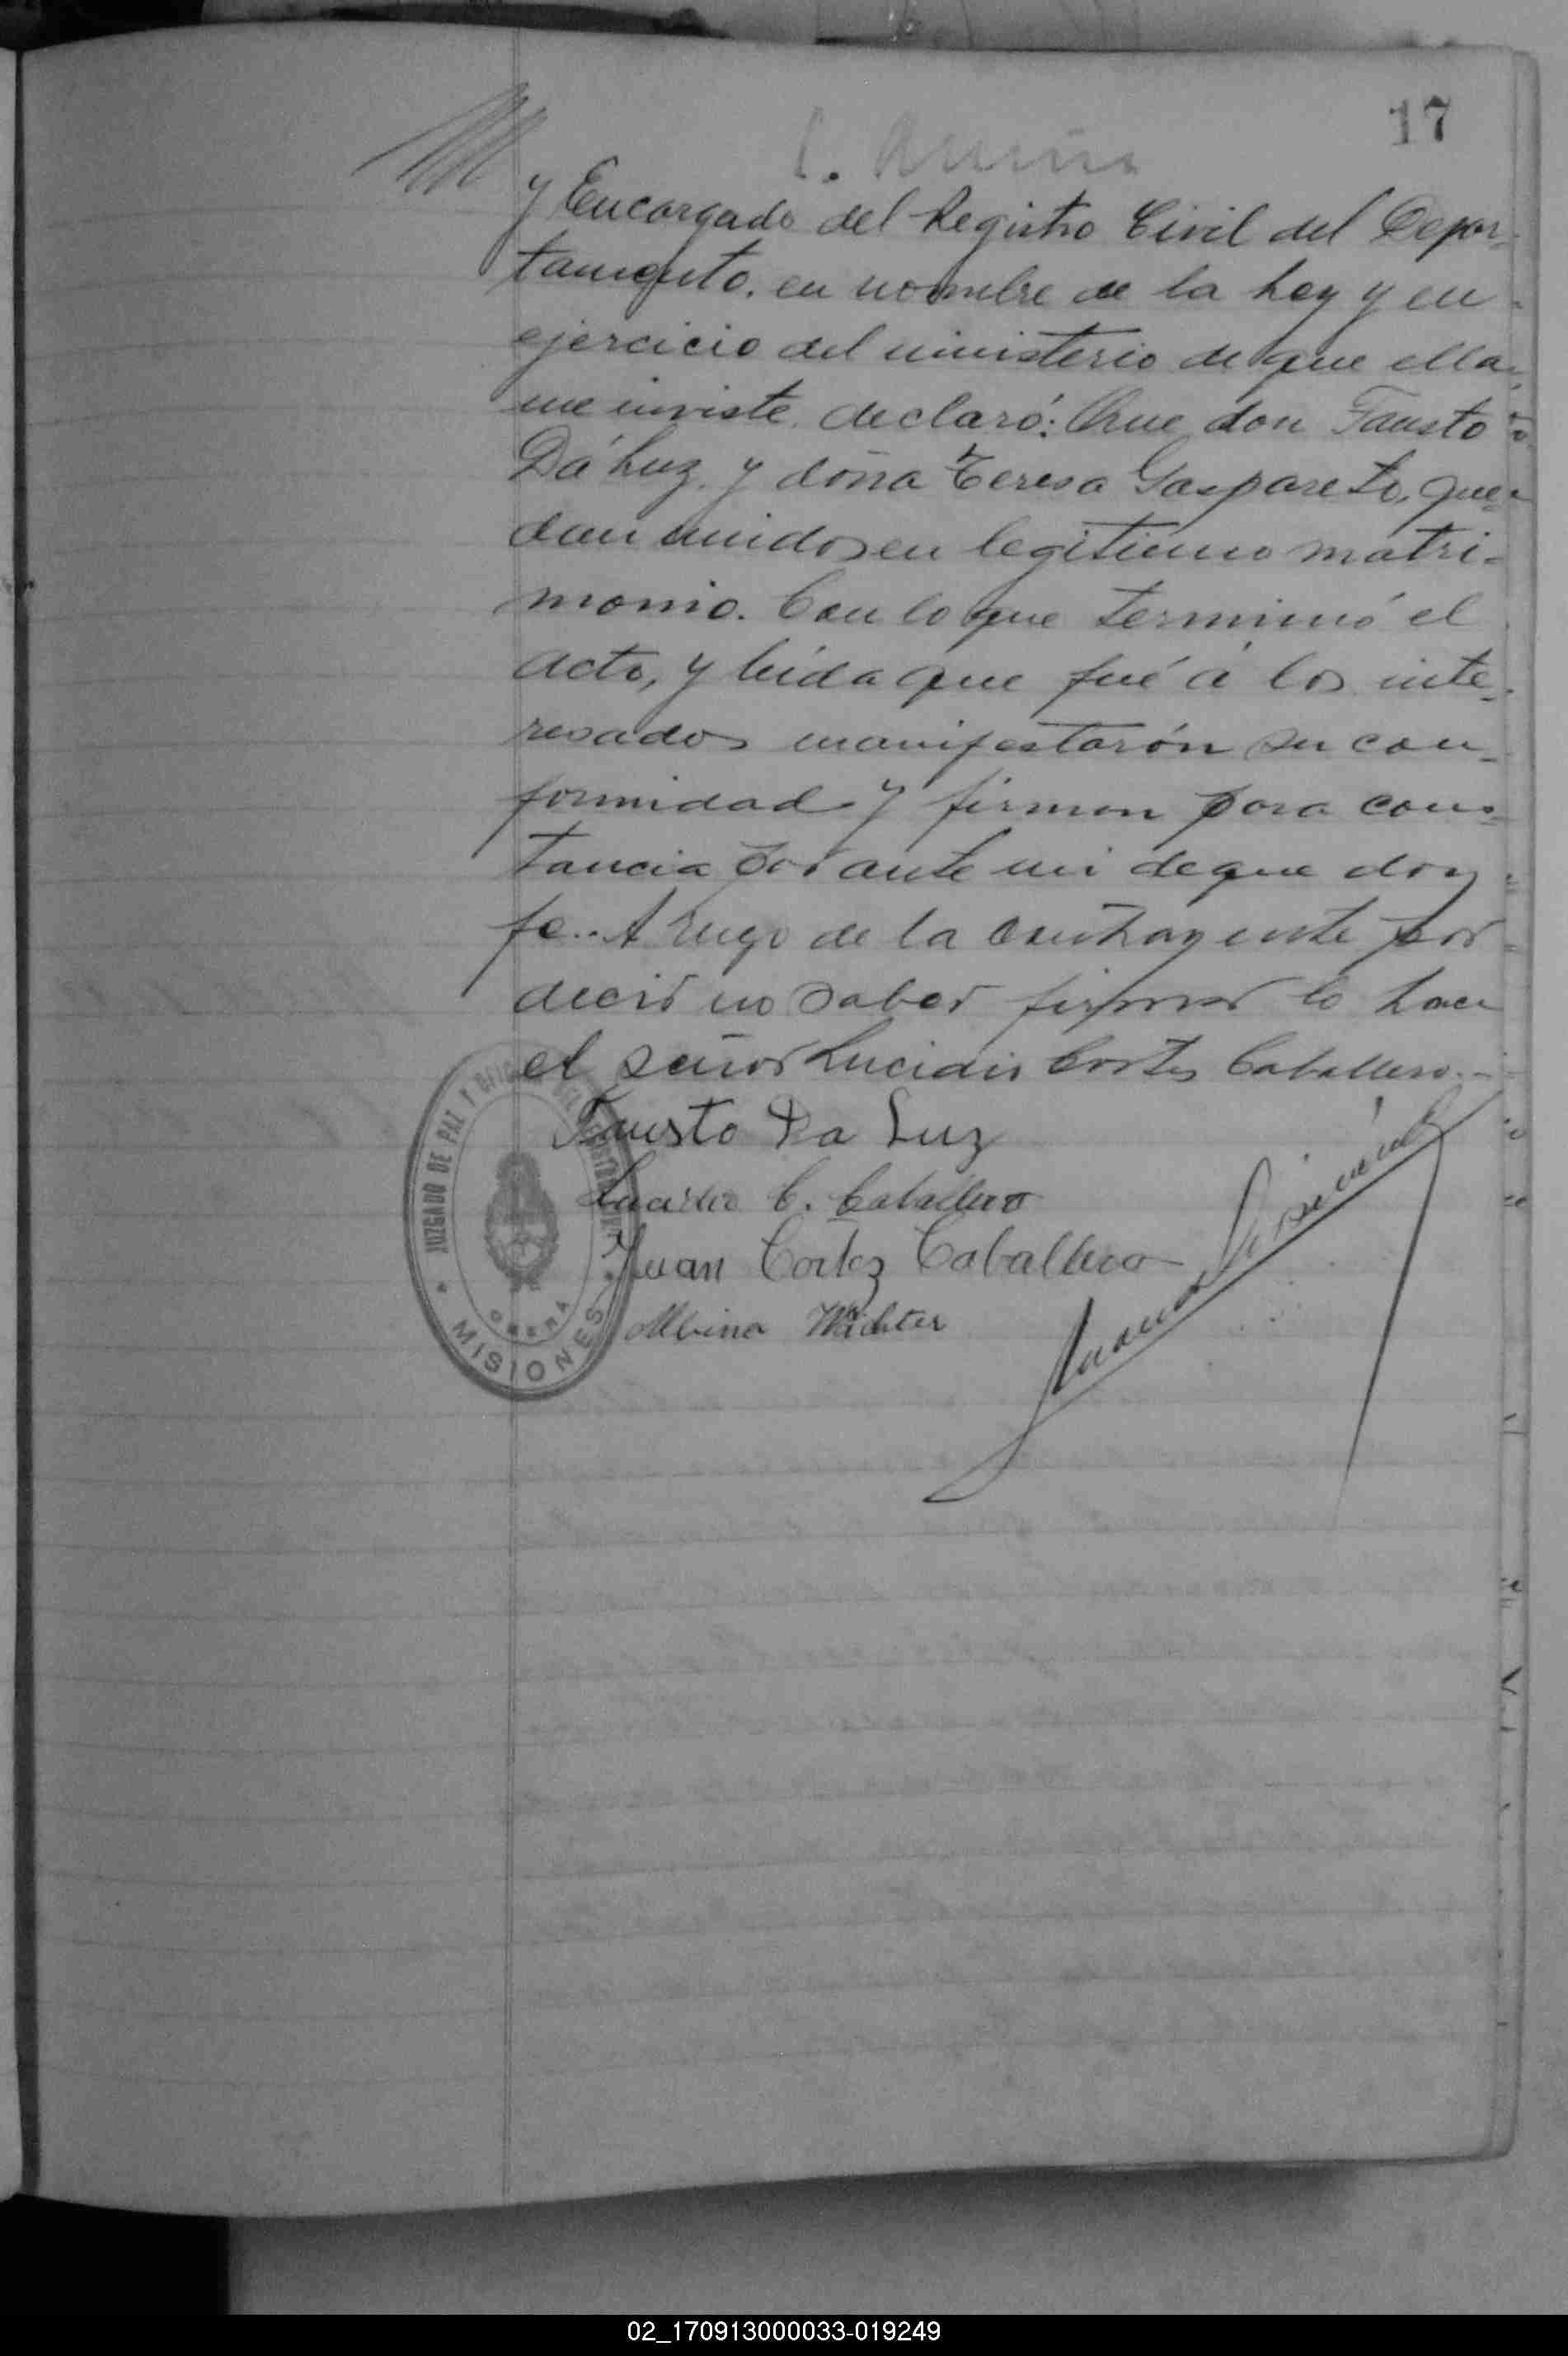 17
y Encargado del Registro Civil del Depar-
tamento, en nombre de la Ley y en
ejercicio del ministerio de que ella
me inviste, declaró: Que don Fausto
Dá Luz, y doña Teresa Gaspareto, que-
dan unidos en legitimo matri-
monio. Con lo que terminó el
acto, y leída que fué á los inte-
resados manifestarón su con-
formidad y firman para cons-
tancia por ante mi de que doy
fe.. A ruego de la contrayente por
decir no saber firmar lo hace
el señor Lucidio Cortes Caballero.-
Fausto Da Luz
Lucidio C. Caballero
Juan Cortez Caballero
Albino Wächter
JUZGADO DE PAZ Y OFICINA DEL REGISTRO CIVIL
OBERA
MISIONES
02_170913000033-019249